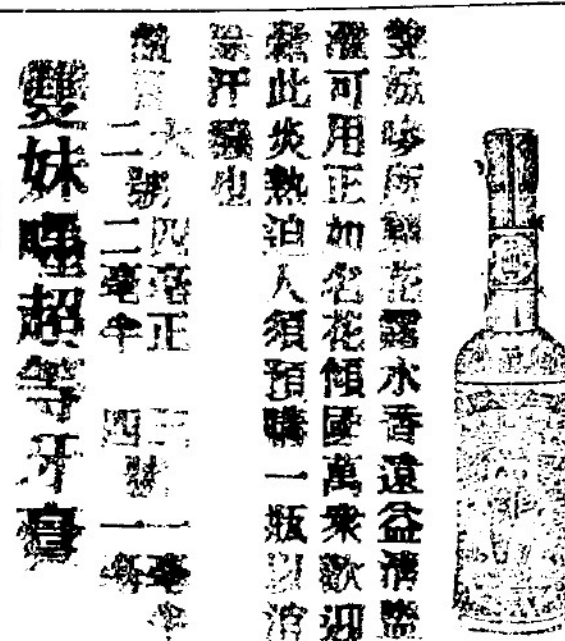 雙妹嘜所製花露水香遠益清盥
濯可用正如名花傾國萬衆歡迎
此炎熱迫人須預購一瓶以消
汗 也
大號 四毫正
二號 二毫半
三號 一毫半
四號 一毫
雙妹嘜超等牙膏